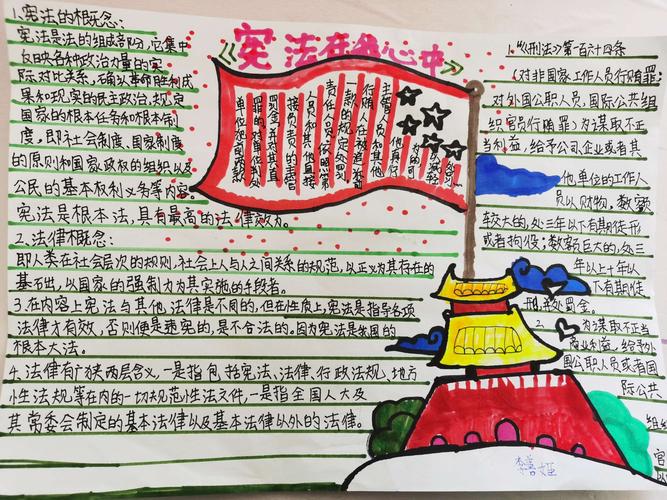 宪法在我心中
1.宪法的概念:
宪法是法的组成部分,它集中
反映各种政治力量的实
际对比关系,确认革命胜利成
果和现实的民主政治,规定
国家的根本任务和根本制
度,即社会制度、国家制度
的原则和国家政权的组织以及
公民的基本权利义务等内容。
宪法是根本法,具有最高的法律效力。
2.法律概念:
即人类在社会层次的规则,社会上人与人之间关系的规范,以正义为其存在的
基石,以国家的强制力为其实施的手段者。
3.在内容上宪法与其他法律是不同的,但在性质上,宪法是指导各项
法律才有效,否则便是违宪的,是不合法的。因为宪法是我国的
根本大法。
4.法律有广狭两层含义,一是指包括宪法、法律、行政法规、地方
性法规等在内的一切规范性法文件,一是指全国人大及
其常委会制定的基本法律以及基本法律以外的法律。
主管人员和其他
行贿人在被追
款的规定处罚
责任人员,依照第
员和其他直接
接负责的主管
罚金,并对其直
罪的,对单位判处
单位犯前两款
1.《刑法》第一百六十四条
(对非国家工作人员行贿罪)
对外国公职人员,国际公共组
织官员行贿罪)为谋取不正
当利益,给予公司、企业或者其
他单位的工作人
员以财物,数额
较大的,处三年以下有期徒刑
或者拘役;数额巨大的,处三
年以上十年以
下有期徒
刑,并处罚金。
2.为谋取不正当
商业利益,给予外
国公职人员或者国
际公共
组织
官
李善姬